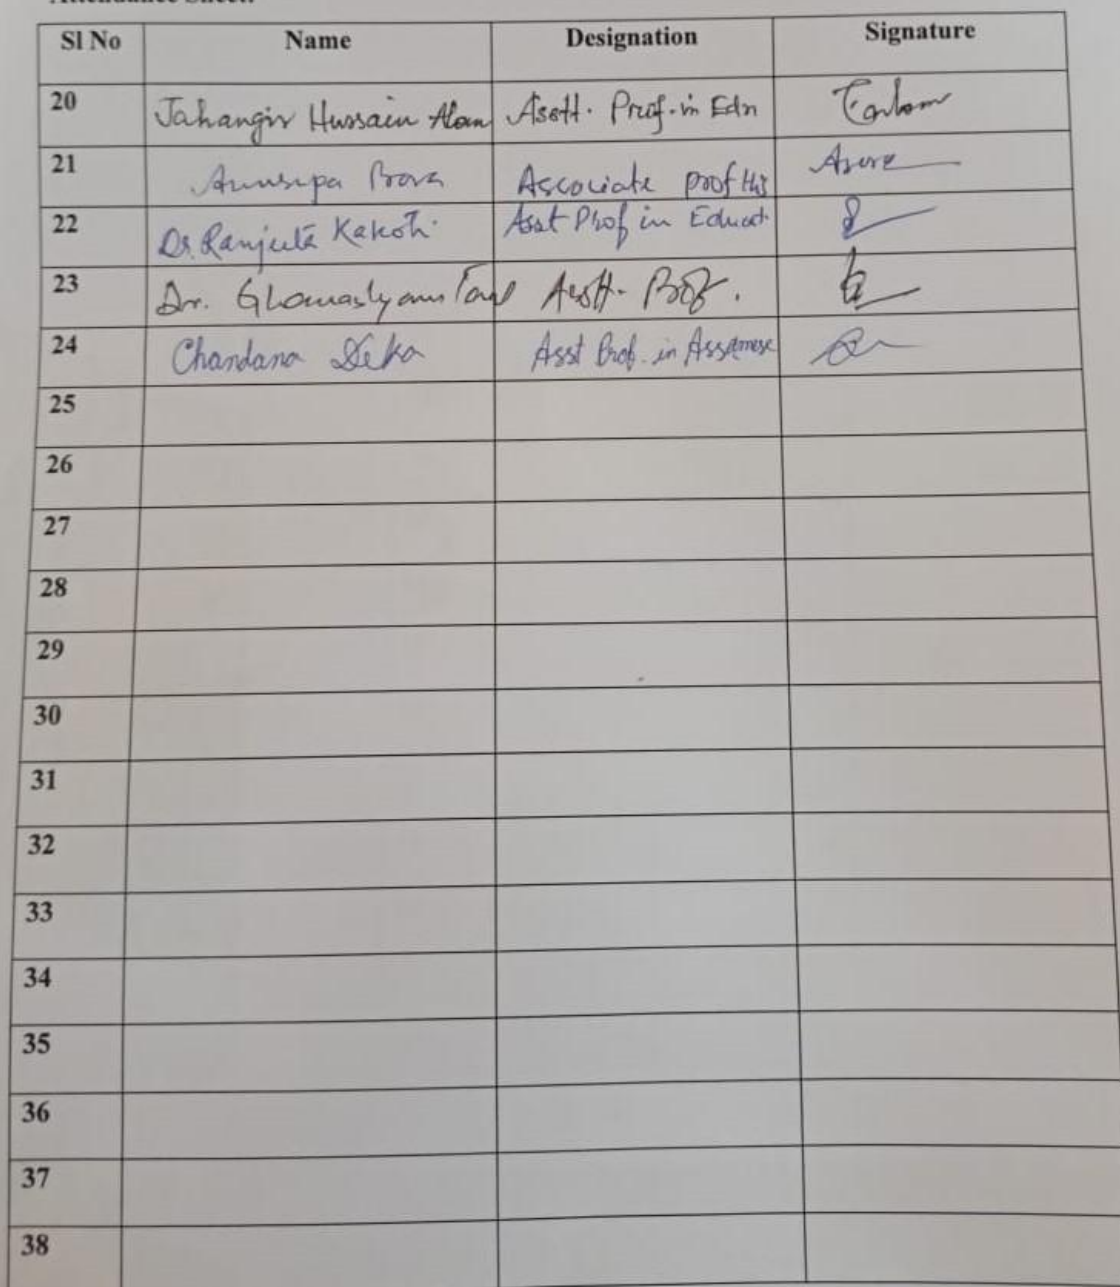 Attendance Sheet:
Sl No Name Designation Signature
20 Jahangir Hussain Alam Asstt. Prof. in Edn
21 Anusupa Bora Associate prof His
22 Dr. Ranjeeta Kakoti Asst Prof in Educati
23 Dr. Asstt. Prof.
24 Chandana Deka Asst Prof. in Assamese
25
26
27
28
29
30
31
32
33
34
35
36
37
38